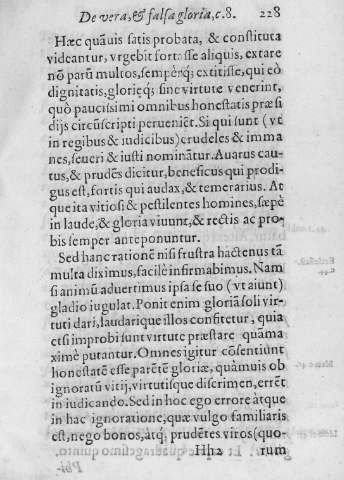 De vera, & falsa gloria, c. 8. 228
Hæc quãuis satis probata, & constituta
videantur, vrgebit fortasse aliquis, extare
nõ parũ multos, semperq; extitisse, qui eò
dignitatis, glorięq; sine virtute venerint,
quò paucissimi omnibus honestatis præsi
dijs circũscripti perueniẽt. Si qui sunt (vt
in regibus & iudicibus) crudeles & imma
nes, seueri & iusti nominãtur. Auarus cau-
tus, & prudẽs dicitur, beneficus qui prodi-
gus est, fortis qui audax, & temerarius. At
que ita vitiosi & pestilentes homines, sæpè
in laude, & gloria viuunt, & rectis ac pro-
bis semper anteponuntur.
Sed hanc rationẽ nisi frustra hactenus tã
multa diximus, facilè infirmabimus. Nam
si animũ aduertimus ipsa se suo (vt aiunt)
gladio iugulat. Ponit enim gloriã soli vir-
tuti dari, laudarique illos confitetur, quia
etsi improbi sunt virtute præstare quãma
ximè putantur. Omnes igitur cõsentiũnt
honestatẽ esse parẽtẽ gloriæ, quàmuis ob
ignoratũ vitij, virtutisque discrimen, errẽt
in iudicando. Sed in hoc ego errore àtque
in hac ignoratione, quæ vulgo familiaris
est, nego bonos, àtq; prudẽtes viros (quo-
Hh2 rum